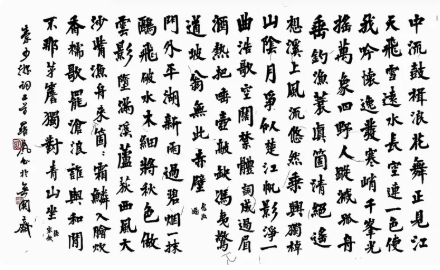 中流鼓楫浪花舞正見江
天飛雪遠水長空連一色使
我吟懷逸發寒峭千峯光
搖萬象四野人蹤滅孤舟
垂釣漁蓑真箇清絕遙
想溪上風流悠然乘興獨棹
山陰月爭似楚江帆影淨一
曲浩歌空闊禁體詞成過眉
酒熱把唾壺敲缺馮夷驚
道坡翁無此赤壁
門外平湖新雨過碧烟一抹
鷗飛破水木細將秋色做
雲影墮滿溪蘆荻西風大
沙觜漁舟來箇箇霜鱗入膾炊
香糯歌罷滄浪誰與和閒
不那茅簷獨對青山坐